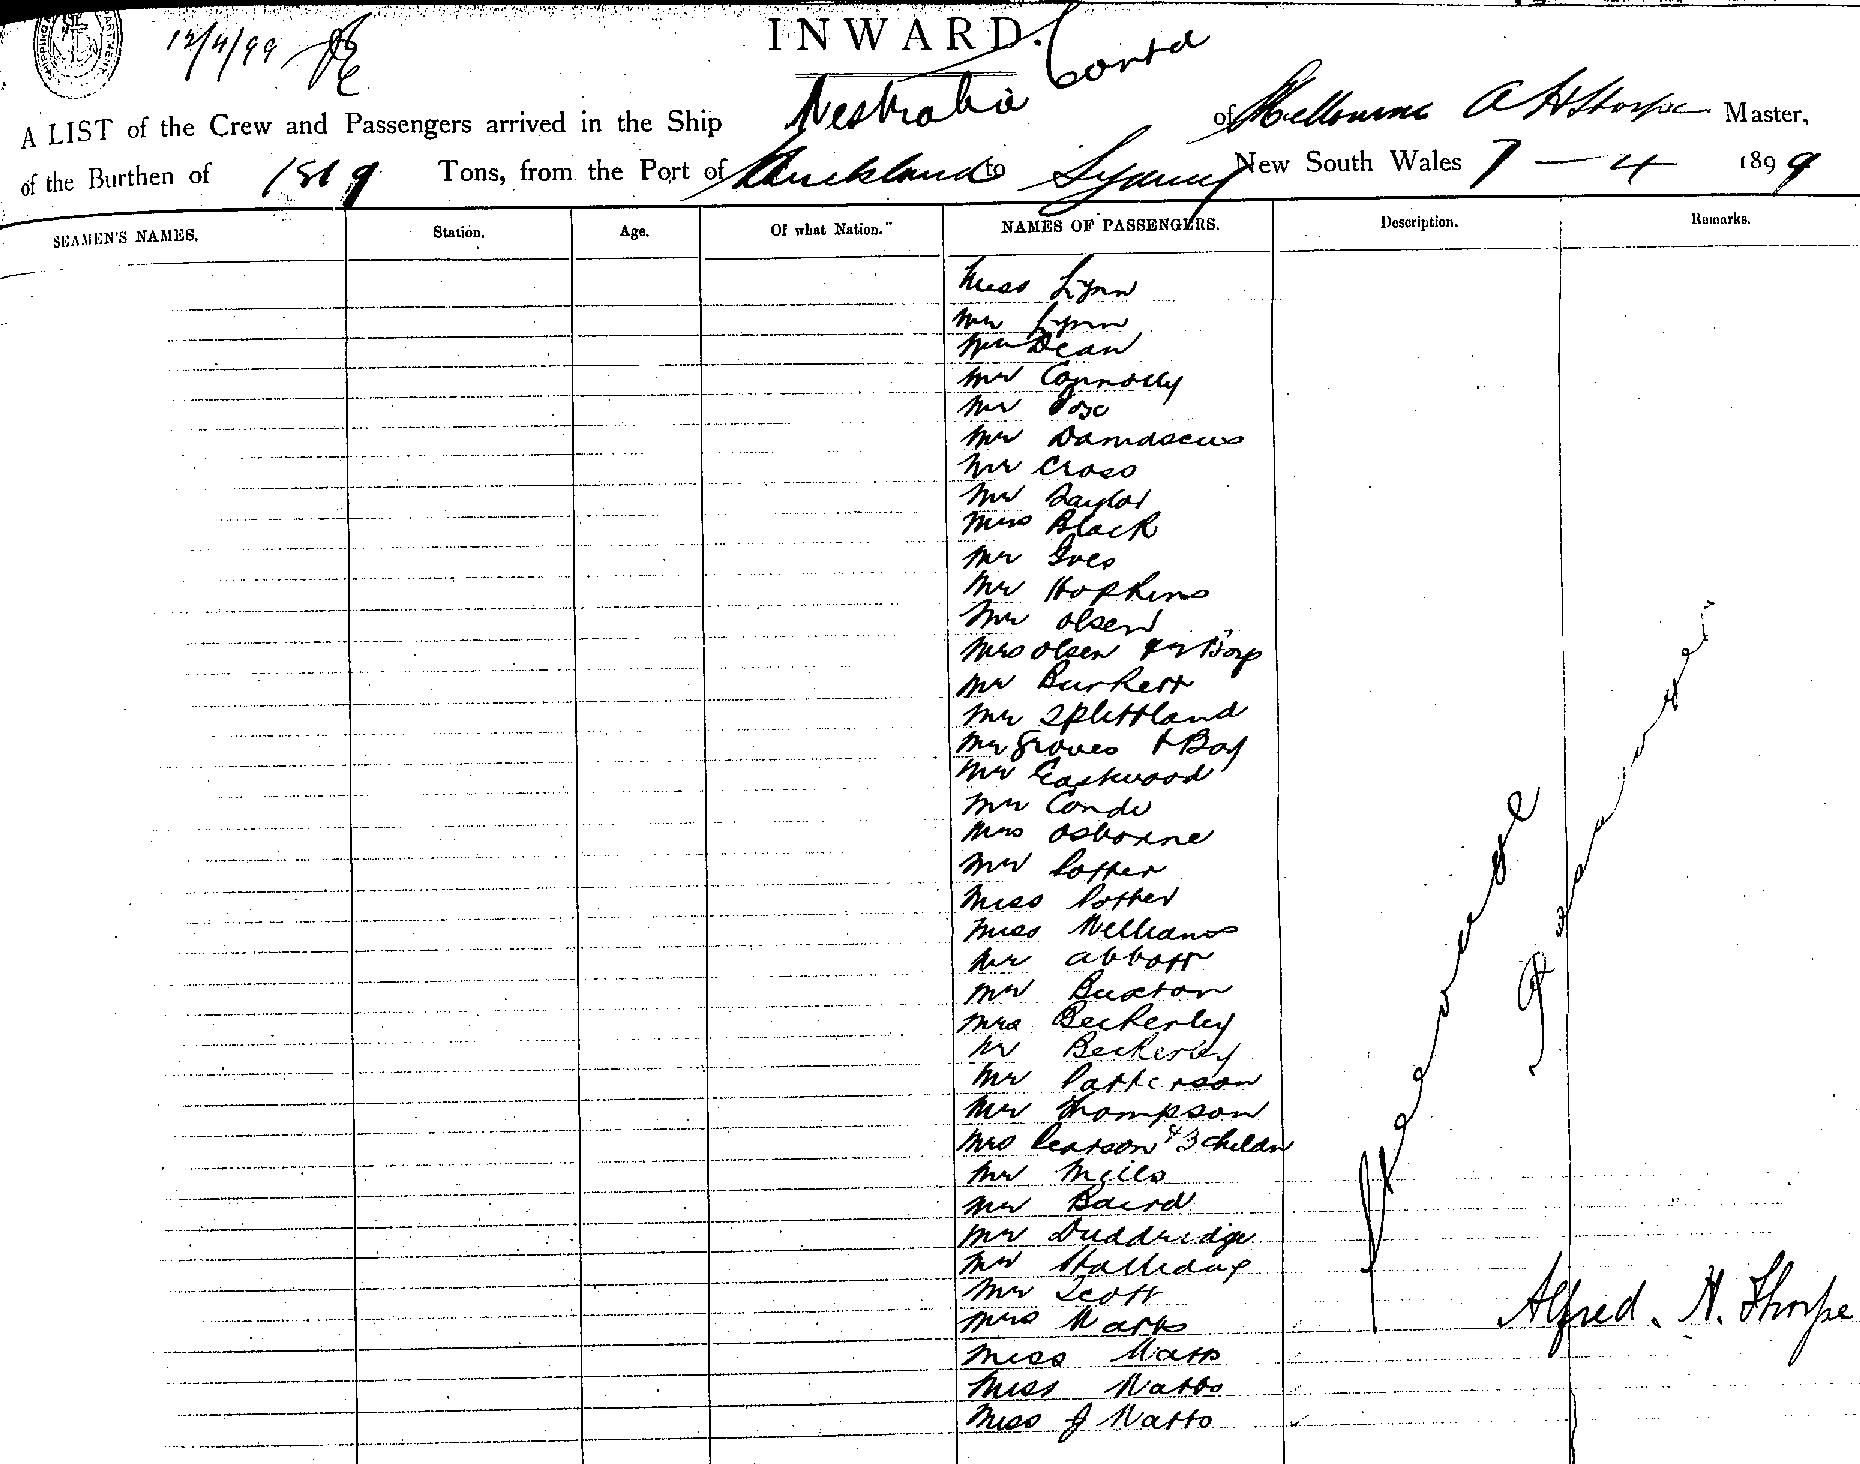 12/4/99
INWARD. Contd
A LIST of the Crew and Passengers arrived in the Ship Westralia of Melbourne A H Thorpe Master,
of the Burthen of 1819 Tons, from the Port of Auckland to Sydney New South Wales 7 — 4 1899
SEAMEN'S NAMES. Station. Age. Of what Nation." NAMES OF PASSENGERS. Description. Remarks.
Miss Lynn
Mr Lynn
Mr Dean
Mr Connolly
Mr
Mr Damascus
Mr Cross
Mr Taylor
Miss Black
Mr Ives
Mr Hopkins
Mr Olsen
Mrs Olsen & 2 Boys
Mr Burkett
Mr Splittland
Mr Groves & Boy
Mr Eastwood
Mr Conde
Mrs Osborne
Mr Potter
Miss Potter
Miss Williams
Mr Abbott
Mr Buxton
Mrs Beckerley
Mr Beckerley
Mr Patterson
Mr Thompson
Mrs Pearson & 3 Childn
Mr
Mr Baird
Mr Duddridge
Mr Halliday
Mr Scott
Mrs Watts
Miss Watts
Miss Watts
Miss J Watts
Steerage
Passengers
Alfred. H. Thorpe